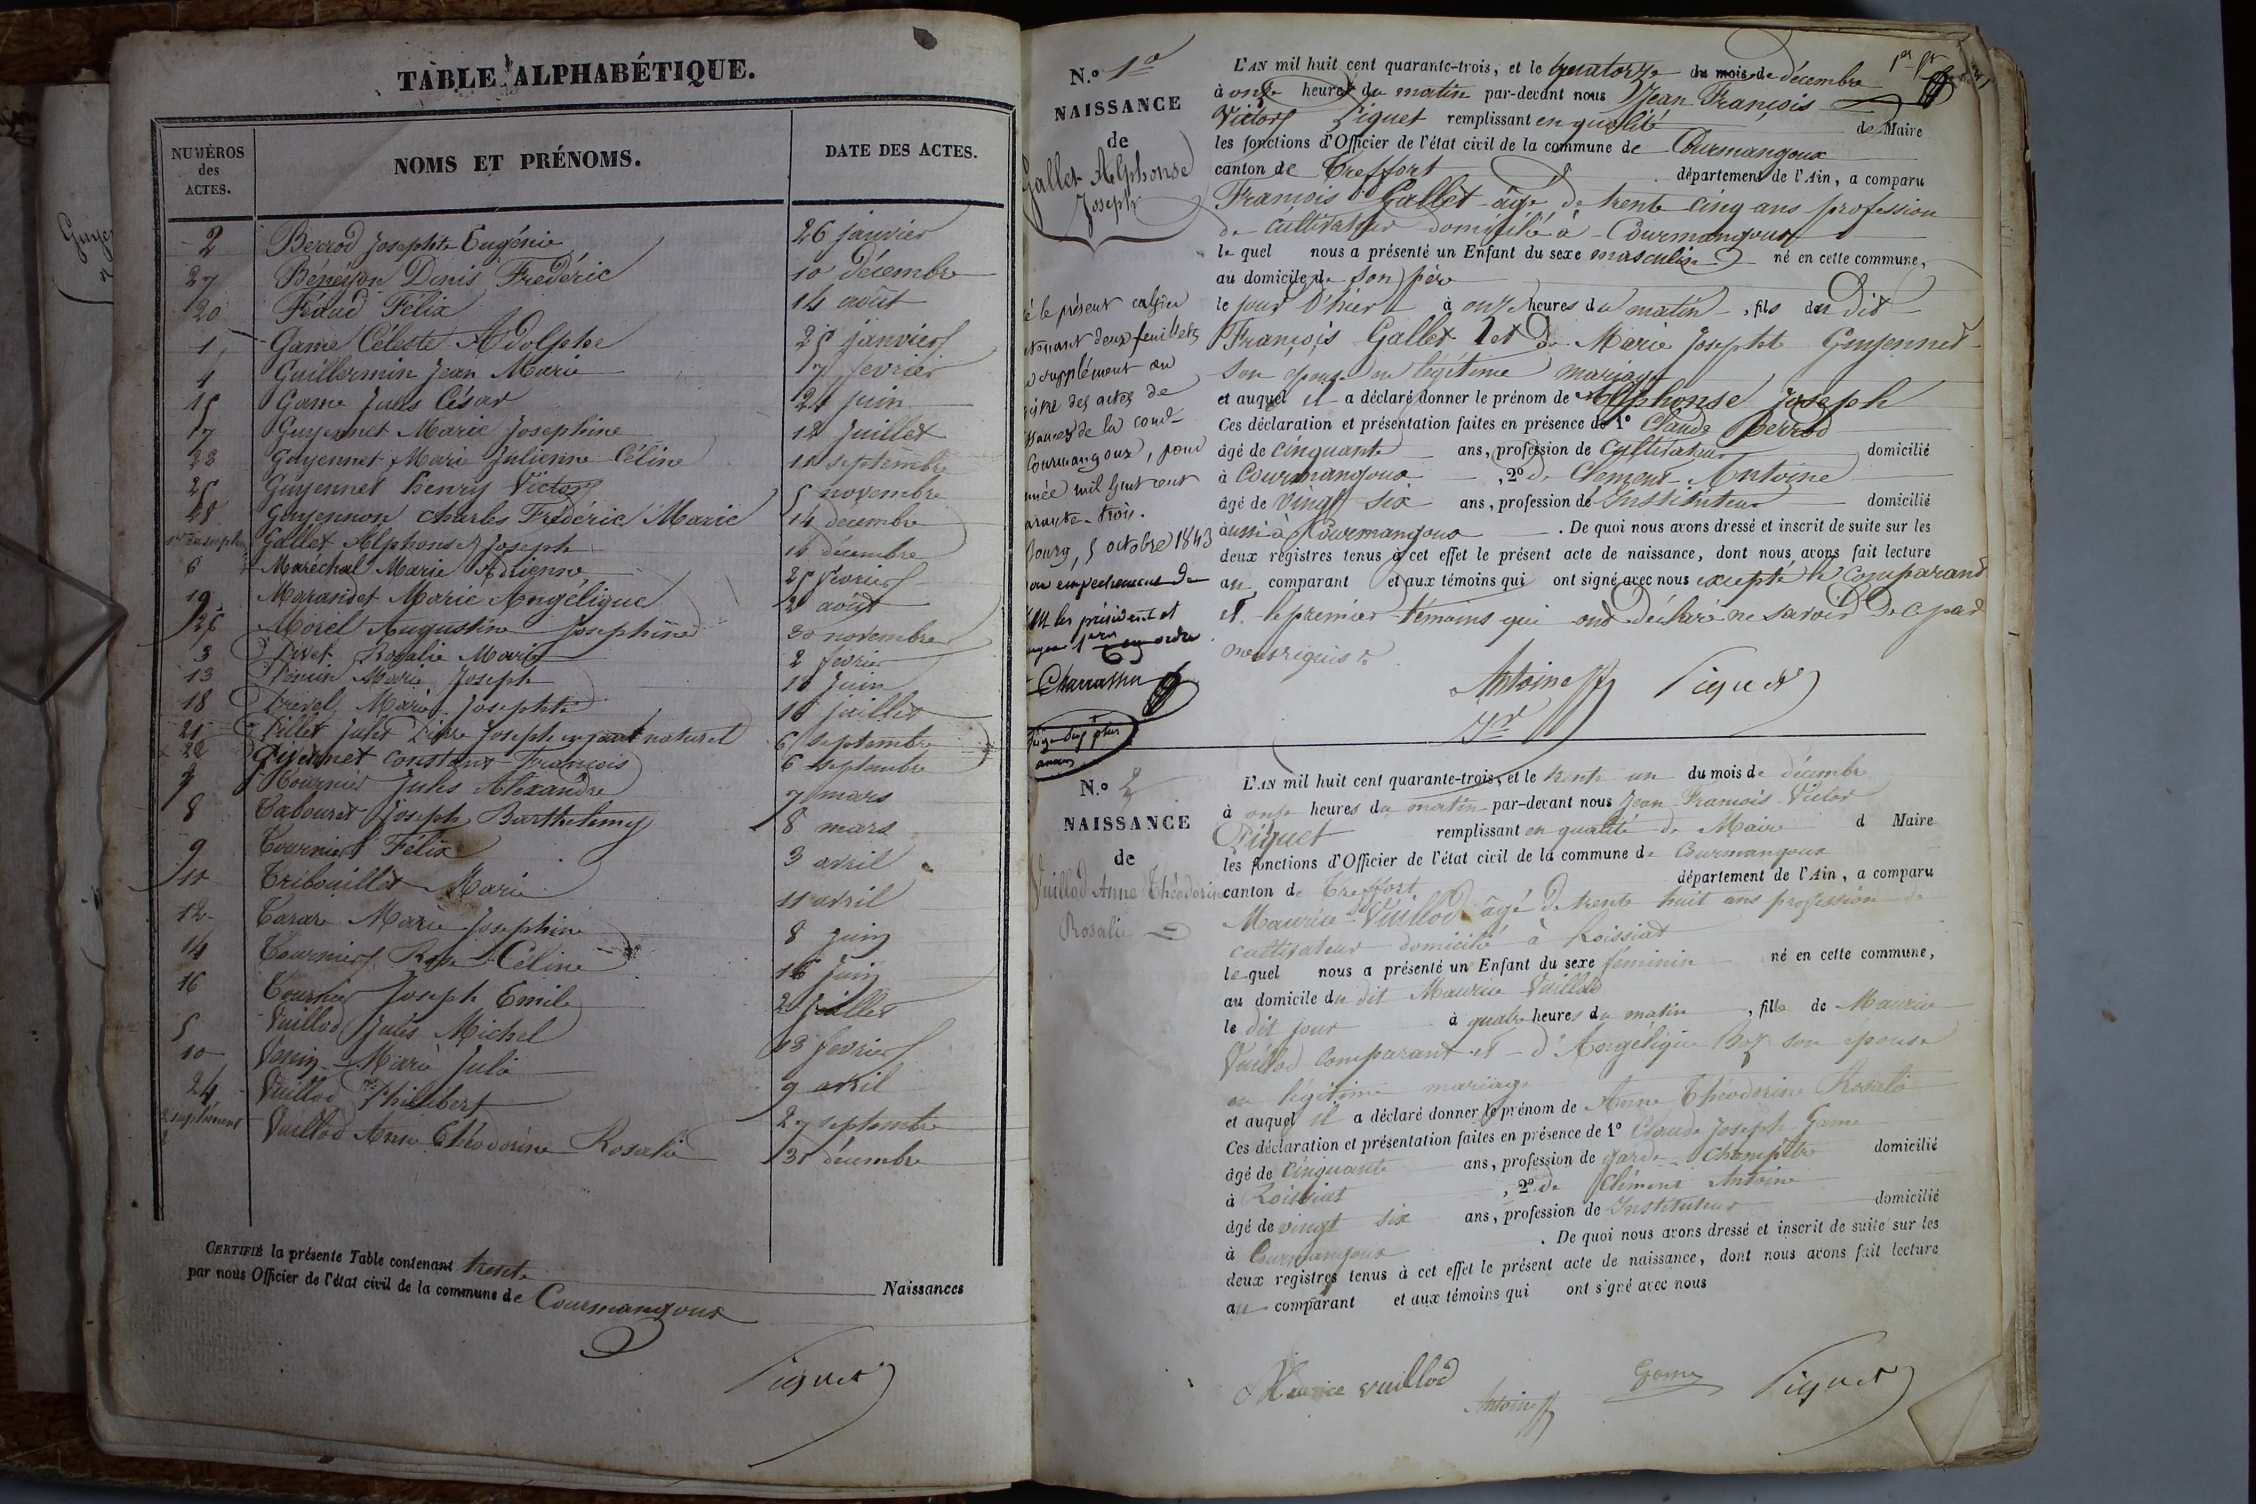 TABLE ALPHABÉTIQUE.
NUMÉROS des ACTES. NOMS ET PRÉNOMS. DATE DES ACTES.
2 Berrod Josephte Eugénie 26 janvier
27 Béneyon Denis Frédéric 10 décembre
20 Féaud Félix 14 août
1 Game Céleste Adolphe 25 janvier
4 Guillermin Jean Marie 17 fevrier
15 Game Jules César 21 juin
17 Guyennet Marie Josephine 12 juillet
23 Guyennet Marie Julienne Céline 11 septembre
25 Guyennet henry Victor 5 novembre
28 Guyennon Charles Frédéric Marie 14 decembre
Gallet Alphonse Joseph 14 décembre
6 Maréchal Marie Adrienne 25 février
19 Marandet Marie Angélique 2 août
26 Morel Augustine Josephine 30 novembre
3 Pivet Rosalie Marie 2 fevrier
13 Marie Joseph 11 juin
18 Marie Josephte 16 juillet
21 Pillet Jules Pierre Joseph enfant naturel 6 septembre
22 Guyennet Constant François 6 septembre
7 Tournier Jules Alexandre 7 mars
8 Tabouret Joseph Barthelemy 8 mars
9 Tournier Félix 3 avril
11 Tribouillet Marie 11 avril
12 Tarare Marie Josephine 8 juin
14 Tournier Rose Céline 16 juin
16 Tournier Joseph Emile 2 juillet
5 Vuillod Jules Michel 13 fevrier
10 Marie Julie 9 avril
24 Vuillod Philibert 27 septembre
2 supplément Vuillod Anne Théodorine Rosalie 31 décembre
CERTIFIÉ la présente Table contenant trente Naissances
par nous Officier de l'état civil de la commune de Courmangoux
Piquet
N.º 1er
NAISSANCE
de
Gallet Alphonse
Joseph
le présent cahier
contenant deux feuillets
supplément au
des actes de
de la com
Courmangoux, pour
mil huit cent
quarante-trois.
Bourg, 5 octobre 1843
empechement de
les président et
Charrassin
L'AN mil huit cent quarante-trois, et le quatorze du mois de décembre
à onze heures du matin par-devant nous Jean François
Victor Piquet remplissant en qualité de Maire
les fonctions d'Officier de l'état civil de la commune de Courmangoux
canton de Treffort département de l'Ain, a comparu
François Gallet âgé de trente cinq ans profession
de cultivateur domicilié à Courmangoux
le quel nous a présenté un Enfant du sexe masculin né en cette commune,
au domicile de son père
le jour d'hier à onze heures du matin, fils du dit
François Gallet et de Marie Josephte Guyennet
son epouse en légitime mariage
et auquel il a déclaré donner le prénom de Alphonse Joseph
Ces déclaration et présentation faites en présence de 1º Claude Berrod
âgé de cinquante ans, profession de cultivateur domicilié
à Courmangoux, 2º de Clement Antoine
âgé de vingt six ans, profession de Instituteur domicilié
aussi à Courmangoux. De quoi nous avons dressé et inscrit de suite sur les
deux registres tenus à cet effet le présent acte de naissance, dont nous avons fait lecture
au comparant et aux témoins qui ont signé avec nous excepté le comparant
et le premier témoins qui ont déclaré ne savoir de ce par
nous requis
Antoine Piquet
N.º 2
NAISSANCE
de
Vuillod Anne Théodorine
Rosalie
L'AN mil huit cent quarante-trois, et le trente un du mois de décembre
à onze heures du matin par-devant nous Jean François Victor
Piquet remplissant en qualité de Maire d Maire
les fonctions d'Officier de l'état civil de la commune de Courmangoux
canton de Treffort département de l'Ain, a comparu
Maurice Vuillod âgé de trente huit ans profession de
cultivateur domicilié à Roissiat
le quel nous a présenté un Enfant du sexe féminin né en cette commune,
au domicile du dit Maurice Vuillod
le dit jour à quatre heures du matin, fille de Maurice
Vuillod comparant et d'Angélique Boz son epouse
en légitime mariage
et auquel il a déclaré donner le prénom de Anne Théodorine Rosalie
Ces déclaration et présentation faites en présence de 1º Claude Joseph Game
âgé de cinquante ans, profession de garde champêtre domicilié
à Roissiat, 2º de Clément Antoine
âgé de vingt six ans, profession de Instituteur domicilié
à Courmangoux. De quoi nous avons dressé et inscrit de suite sur les
deux registres tenus à cet effet le présent acte de naissance, dont nous avons fait lecture
au comparant et aux témoins qui ont signé avec nous
Maurice vuillod Antoine Game Piquet